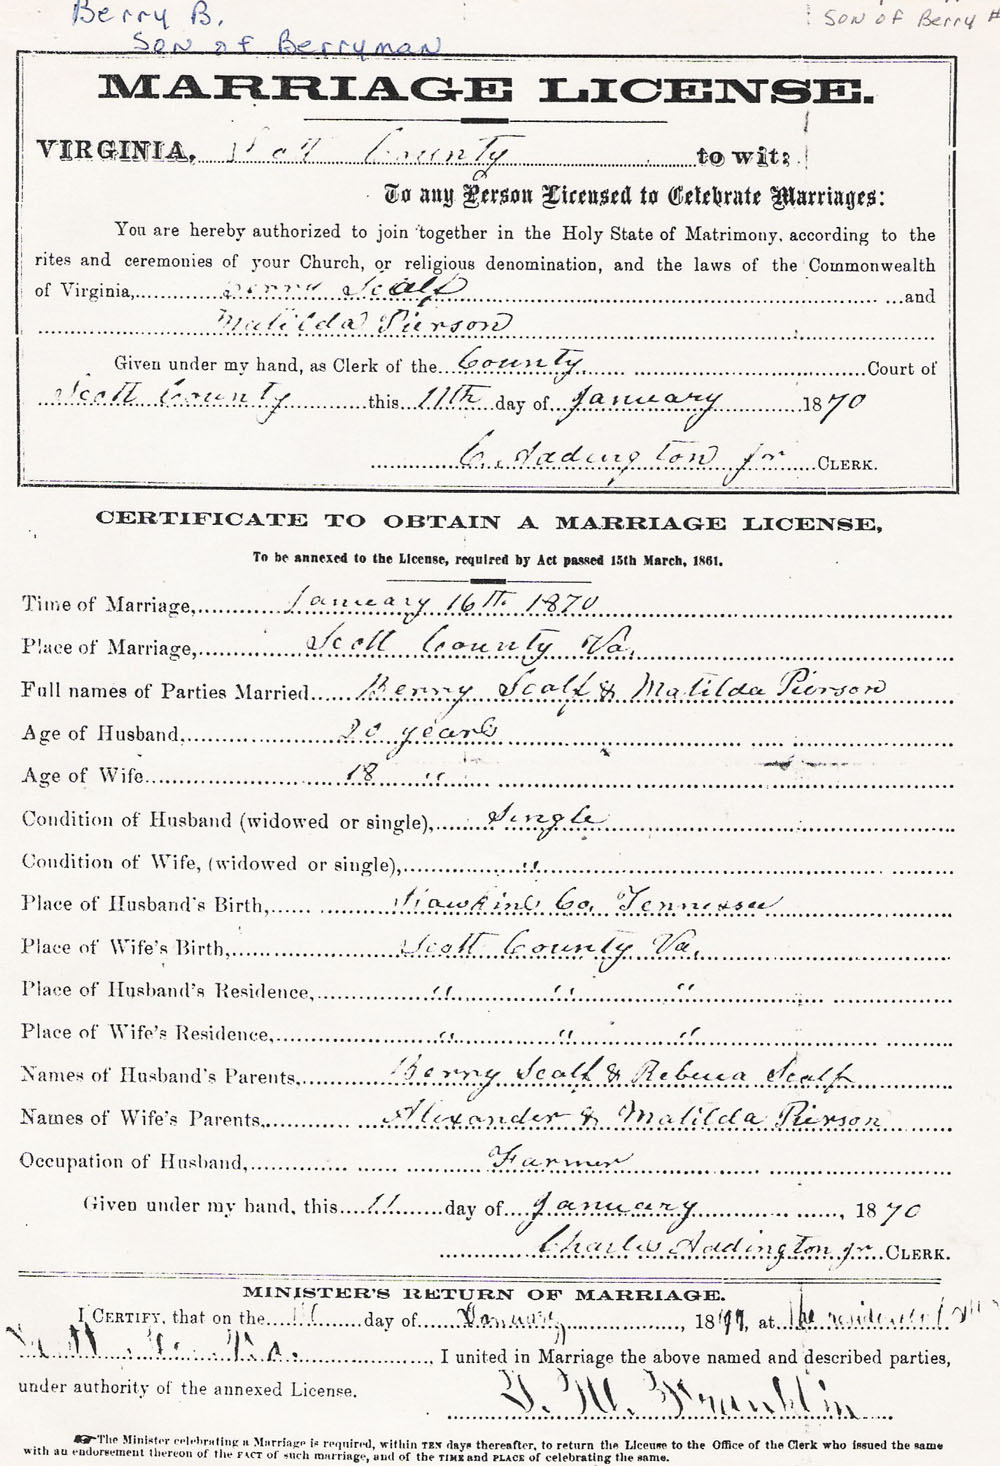 Berry B.
Son of Berryman
Son of Berry #
MARRIAGE LICENSE.
VIRGINIA, Scott County to wit:
To any Person Licensed to Celebrate Marriages:
You are hereby authorized to join together in the Holy State of Matrimony, according to the
rites and ceremonies of your Church, or religious denomination, and the laws of the Commonwealth
of Virginia, Berry Scalf and
Matilda Pierson
Given under my hand, as Clerk of the County Court of
Scott County this 11th day of January 1870
C. Addington jr CLERK.
CERTIFICATE TO OBTAIN A MARRIAGE LICENSE,
To be annexed to the License, required by Act passed 15th March, 1861.
Time of Marriage, January 16th 1870
Place of Marriage, Scott County Va.
Full names of Parties Married Berry Scalf & Matilda Pierson
Age of Husband, 20 years
Age of Wife 18 "
Condition of Husband (widowed or single), Single
Condition of Wife, (widowed or single), "
Place of Husband's Birth, Hawkins Co, Tennessee
Place of Wife's Birth, Scott County Va,
Place of Husband's Residence, " " "
Place of Wife's Residence, " " "
Names of Husband's Parents, Berry Scalf & Rebecca Scalf
Names of Wife's Parents, Alexander & Matilda Pierson
Occupation of Husband, Farmer
Given under my hand, this 11 day of January, 1870
Charles Addington jr. CLERK.
MINISTER'S RETURN OF MARRIAGE.
I CERTIFY, that on the day of January, 18 , at the residence of
, I united in Marriage the above named and described parties,
under authority of the annexed License.
Franklin
☞ The Minister celebrating a Marriage is required, within TEN days thereafter, to return the License to the Office of the Clerk who issued the same
with an endorsement thereon of the FACT of such marriage, and of the TIME and PLACE of celebrating the same.